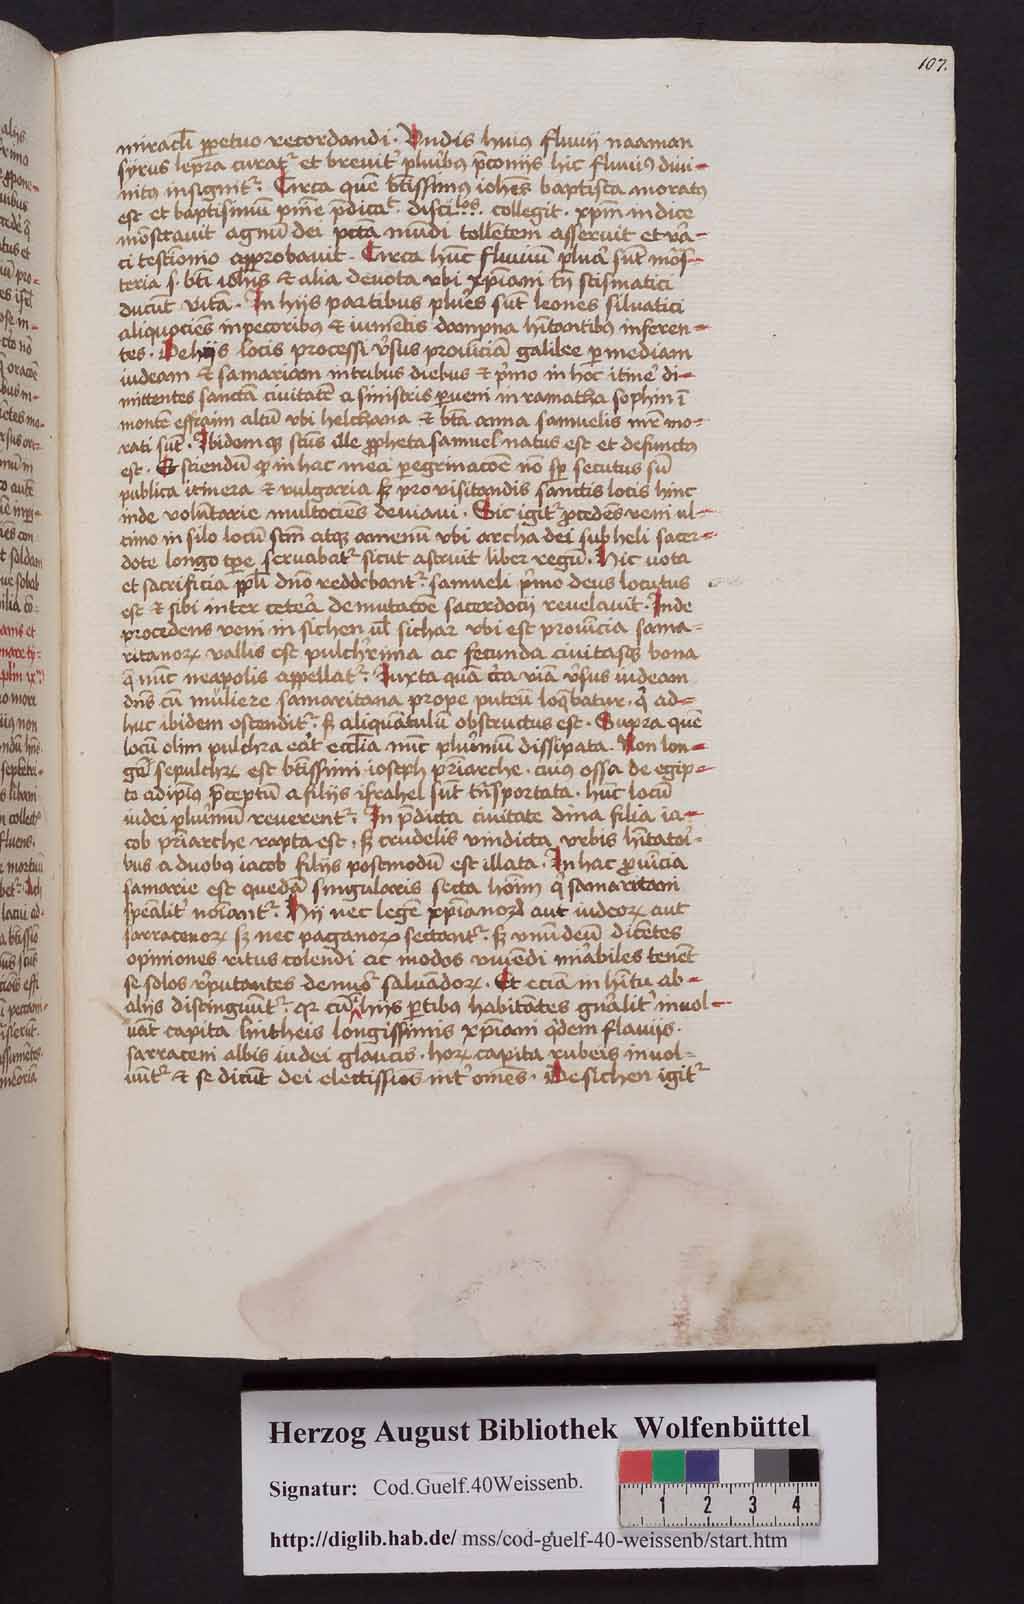 107.
miracl̄i ꝑpetuo recordandi. Vndis huiꝰ fluuij naaman
syrus lepra curatr̄ et breuit̄ pluibꝫ p̄conijs hic fluuiꝰ diui-
nitꝰ insignitr̄. Circa quē btīssimꝰ ioh̄es baptista moratꝰ
est et baptismū pnīe p̄dicās discip̄los collegit. xpm̄ indice
mōstrauit agnū dei pctā mūdi tollētem asseruit et
ci testīonio approbauit. Circa hūc fluuiū plura sūt mōs-
teria s. btī ioh̄is et alia deuota vbi xp̄iani tn̄ scismatici
ducūt vitā. In hijs partibus plures sūt leones siluatici
aliquociēs in pecoribꝫ et iumētis dampna h̄itantibꝫ inferen-
tes. De hijs locis processi v̄sus prouīciā galilee per mediam
iudeam et samariam in tribus diebus et pͥmo in hoc itin̄e di-
mittentes sanctā ciuitatē a sinistris perueni in ramatha sophim ī
monte effraim altū vbi helchana et btā anna samuelis mr̄ mo-
rati sūt. Ibidemqꝫ sctūs ille ꝓpheta samuel natus est et defunctꝰ
est. Et sciendū qꝫ in hac mea peregrinacōe nō sp̄ secutus sū
publica itinera et vulgaria sꝫ pro visitandis sanctis locis hinc
inde volūtarie multociēs deuiaui. Sic igitr̄ ꝓcedēs veni ul-
timo in silo locū sctm̄ atqꝫ amenū vbi archa dei sub heli sacer-
dote longo tp̄e seruabatr̄ sicut astruit liber regū. Hic uota
et sacrificia ppl̄i dn̄o reddebantr̄. samueli pͥmo deus locutus
est et sibi inter cetera de mutacōe sacerdocij reuelauit. Inde
procedens veni in sichen ul̄ sichar vbi est prouīcia sama-
ritanoꝝ vallis est pulchͥrima ac fecunda ciuitasqꝫ bona
q̄ nūc neapolis appellatr̄. Iuxta quā circa viā v̄sus iudeam
dn̄s cū muliere samaritana prope puteū loqͣbatur. qͥ ad-
huc ibidem ostenditr̄. sꝫ aliquātulū obstructus est. Supra quē
locū olim pulchra erat eccl̄ia nūc pluͥmū dissipata. Non lon-
ge sepulchꝝ est btīssimi ioseph pr̄iarche. cuiꝰ ossa de egip-
to adipiꝰ p̄ceptū a filijs israhel sūt tn̄sportata. hūc locū
iudei pluͥmū reuerentr̄. In p̄dicta ciuitate dina filia ia-
cob pr̄iarche rapta est. sꝫ crudelis vindicta vrbis h̄itatoͥ-
bus a duobꝫ iacob filijs postmodū est illata. In hac ꝓuīcia
samarie est quedā singularis secta hoīm qͥ samaritani
sp̄ealit̄ noīantr̄. Hij nec legē xp̄ianoꝝ aut iudeoꝝ aut
sarracenoꝝ sꝫ nec paganoꝝ sectantr̄. sꝫ vnū deū dicētes
opiniones ritus colendi ac modos viuēdi mirabiles tenēt
se solos reputantes de nūo saluādoꝝ. Et eciā in h̄itu ab
alijs distinguūtr̄. qꝛ cū ī hijs ꝑtibꝫ habitātes gn̄alit̄ inuol-
uāt capita lintheis longissimis xp̄iani qͥdem flauijs.
sarraceni albis iudei glaucis. hoꝝ capita rubeis inuol-
uūtr̄ et se dicūt dei electissios int̄ omēs. De sichen igitr̄
Herzog August Bibliothek Wolfenbüttel
Signatur: Cod.Guelf.40Weissenb.
1 2 3 4
http://diglib.hab.de/ mss/cod-guelf-40-weissenb/start.htm